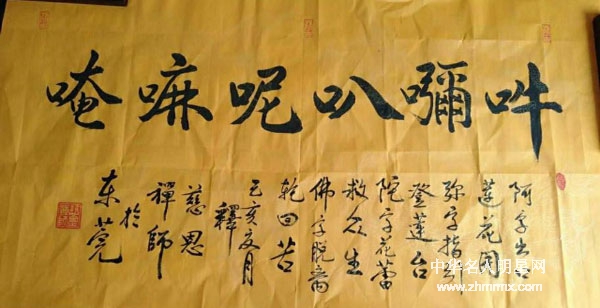 唵嘛呢叭吽
阿字出
蓮花開
弥字指
登蓮台
陀字花蕾
救众生
佛字脱离
苦
己亥夏月
釋
慈恩
禪師
於
东莞
中华名人明星网
www.zhmrmx.com